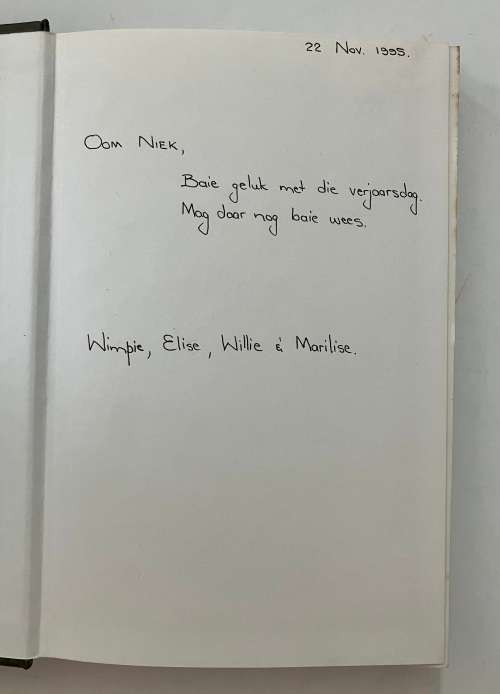 22 Nov. 1995.
Oom Niek,
Baie geluk met die verjaarsdag.
Mag daar nog baie wees.
Wimpie, Elise, Willie & Marilise.